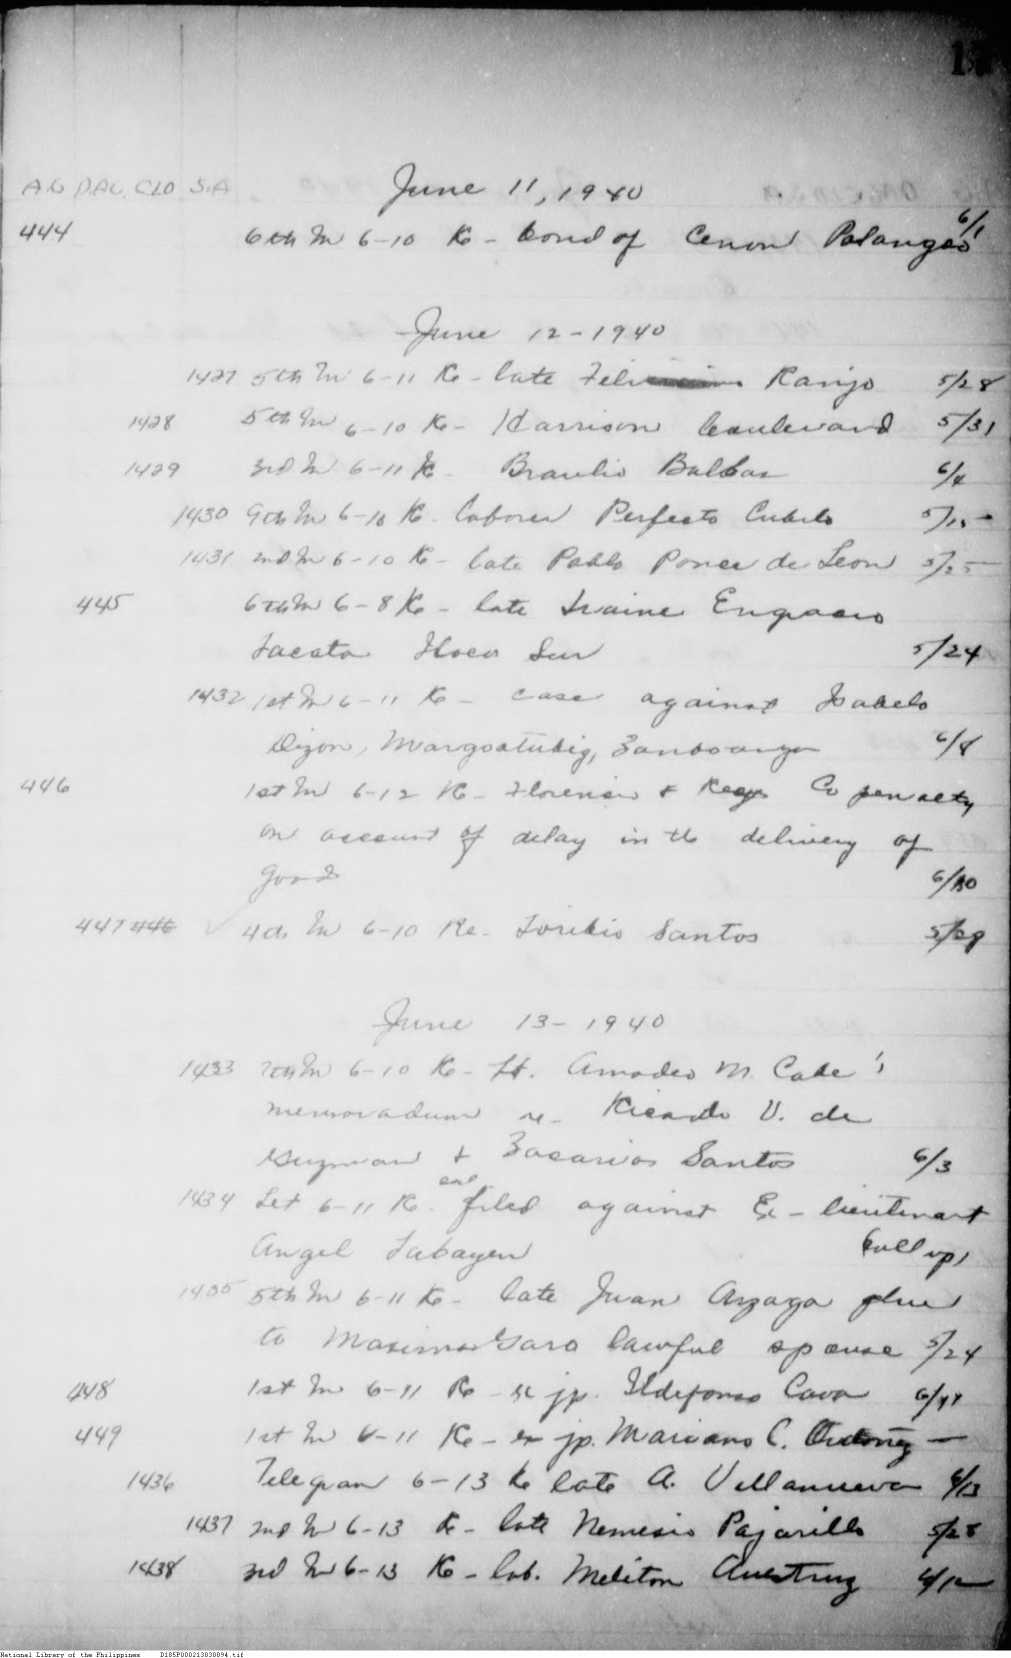 AG DAC CLO S.A June 11, 1940
444 6th In 6-10 Re - bond of Cenon Palangeo 6/1
June 12-1940
1427 5th In 6-11 Re - late Ranijo 5/28
1428 5th In 6-10 Re - Harrison Boulevard 5/31
1429 3rd In 6-11 Re Braulio Balbas 6/4
1430 9th In 6-10 Re. laborer Perfecto Cubelo 5/15
1431 2nd In 6-10 Re - late Pablo Ponce de Leon 5/25
445 6th In 6-8 Re - late Engracio
Ilocos Sur 5/24
1432 1st In 6-11 Re - case against Isabelo
Dizon, Margosatubig, Zamboanga 6/8
446 1st In 6-12 Re - & Reyes Co penalty
on account of delay in the delivery of
goods 6/10
447 446 4th In 6-10 Re - Toribio Santos 5/29
June 13-1940
1433 7th In 6-10 Re - Lt. Amadeo M. Cabe'
memoradum re - Ricardo V. de
Guzman & Zacarias Santos 6/3
1434 Let 6-11 Re. case filed against Ex - lieutenant
Angel Tabayen
1435 5th In 6-11 Re - late Juan Arzaga due
to Maxima Garo lawful spouse 5/24
448 1st In 6-11 Re - ex jp. Ildefonso Cava 6/11
449 1st In 6-11 Re - ex jp. Mariano C. Ordoñez —
1436 Telegram 6-13 Re late A. Villanueva 6/13
1437 2nd In 6-13 Re - late Nemesio Pajarillo 5/28
1438 3rd In 6-13 Re - lab. Meliton 6/12
National Library of the Philippines D185P000213830894.tif